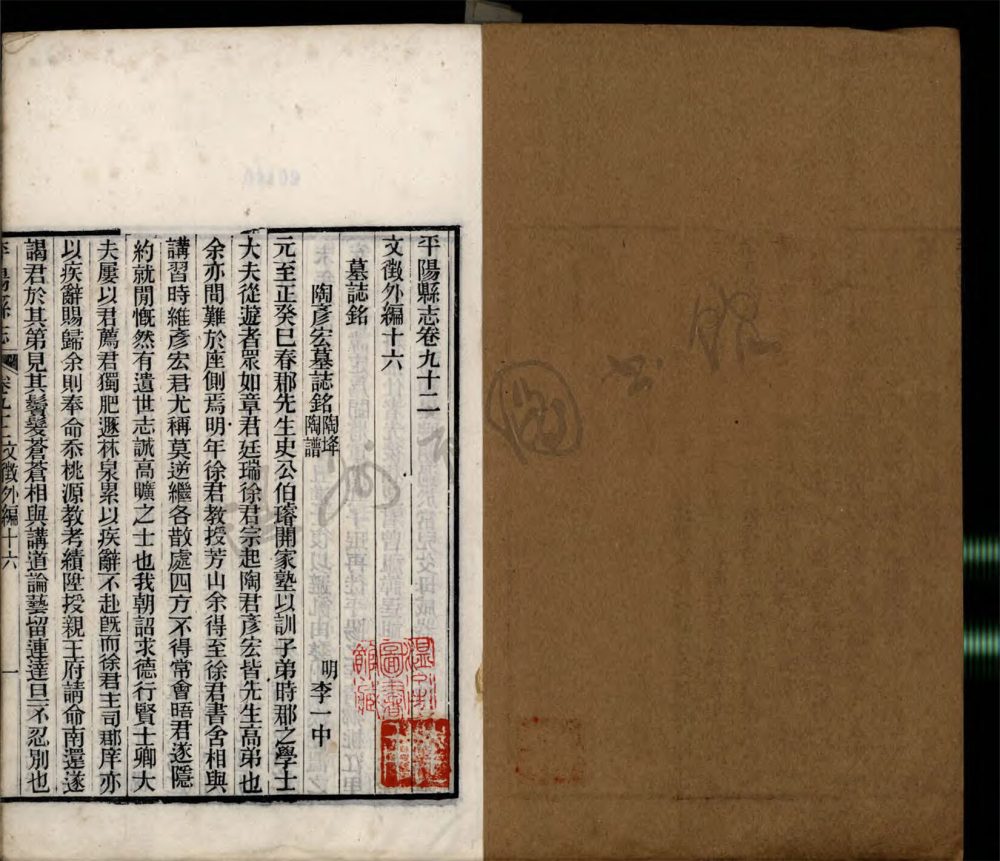 平陽縣志卷九十二
文徵外編十六
墓誌銘
陶彥宏墓誌銘 陶峰陶譜 明 李一中
元至正癸巳春郡先生史公伯璿開家塾以訓子弟時郡之學士
大夫從遊者眾如章君廷瑞徐君宗起陶君彥宏皆先生高弟也
余亦問難於座側焉明年徐君教授芳山余得至徐君書舍相與
講習時維彥宏君尤稱莫逆繼各散處四方不得常會晤君遂隱
約就閒慨然有遺世志誠高曠之士也我朝詔求德行賢士卿大
夫屢以君薦君獨肥遯林泉累以疾辭不赴旣而徐君主司郡庠亦
以疾辭賜歸余則奉命忝桃源教考績陞授親王府請命南還遂
謁君於其第見其鬢髮蒼蒼相與講道論藝留連達旦不忍別也
平陽縣志 卷九十二文徵外編十六 一
溫州圖書館藏